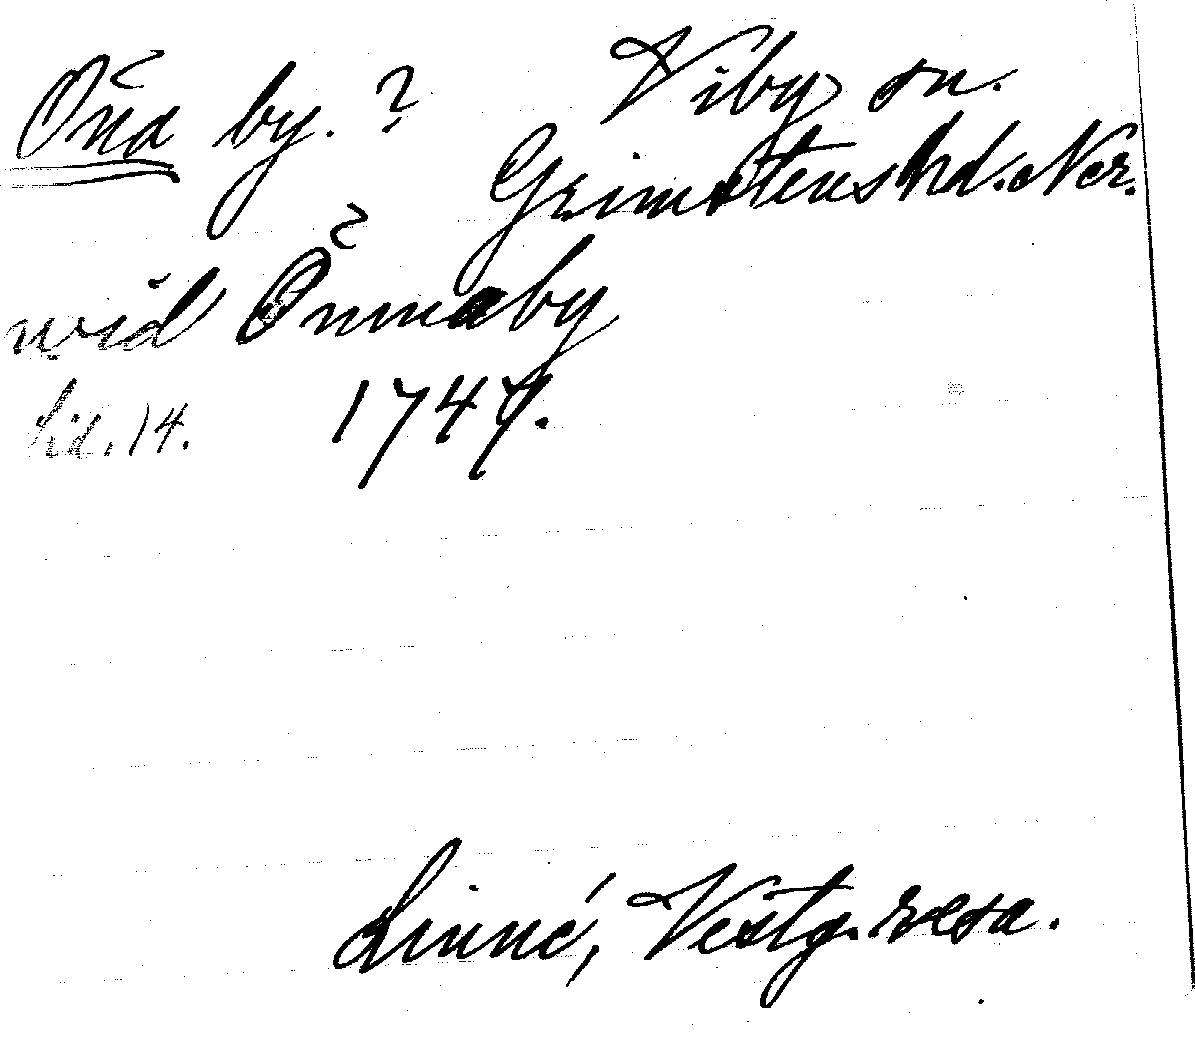 Öna by. ? Viby sn.
Grimstens hd. Ner.
wid Önnaby
1747.
Linné, Vestg. resa.